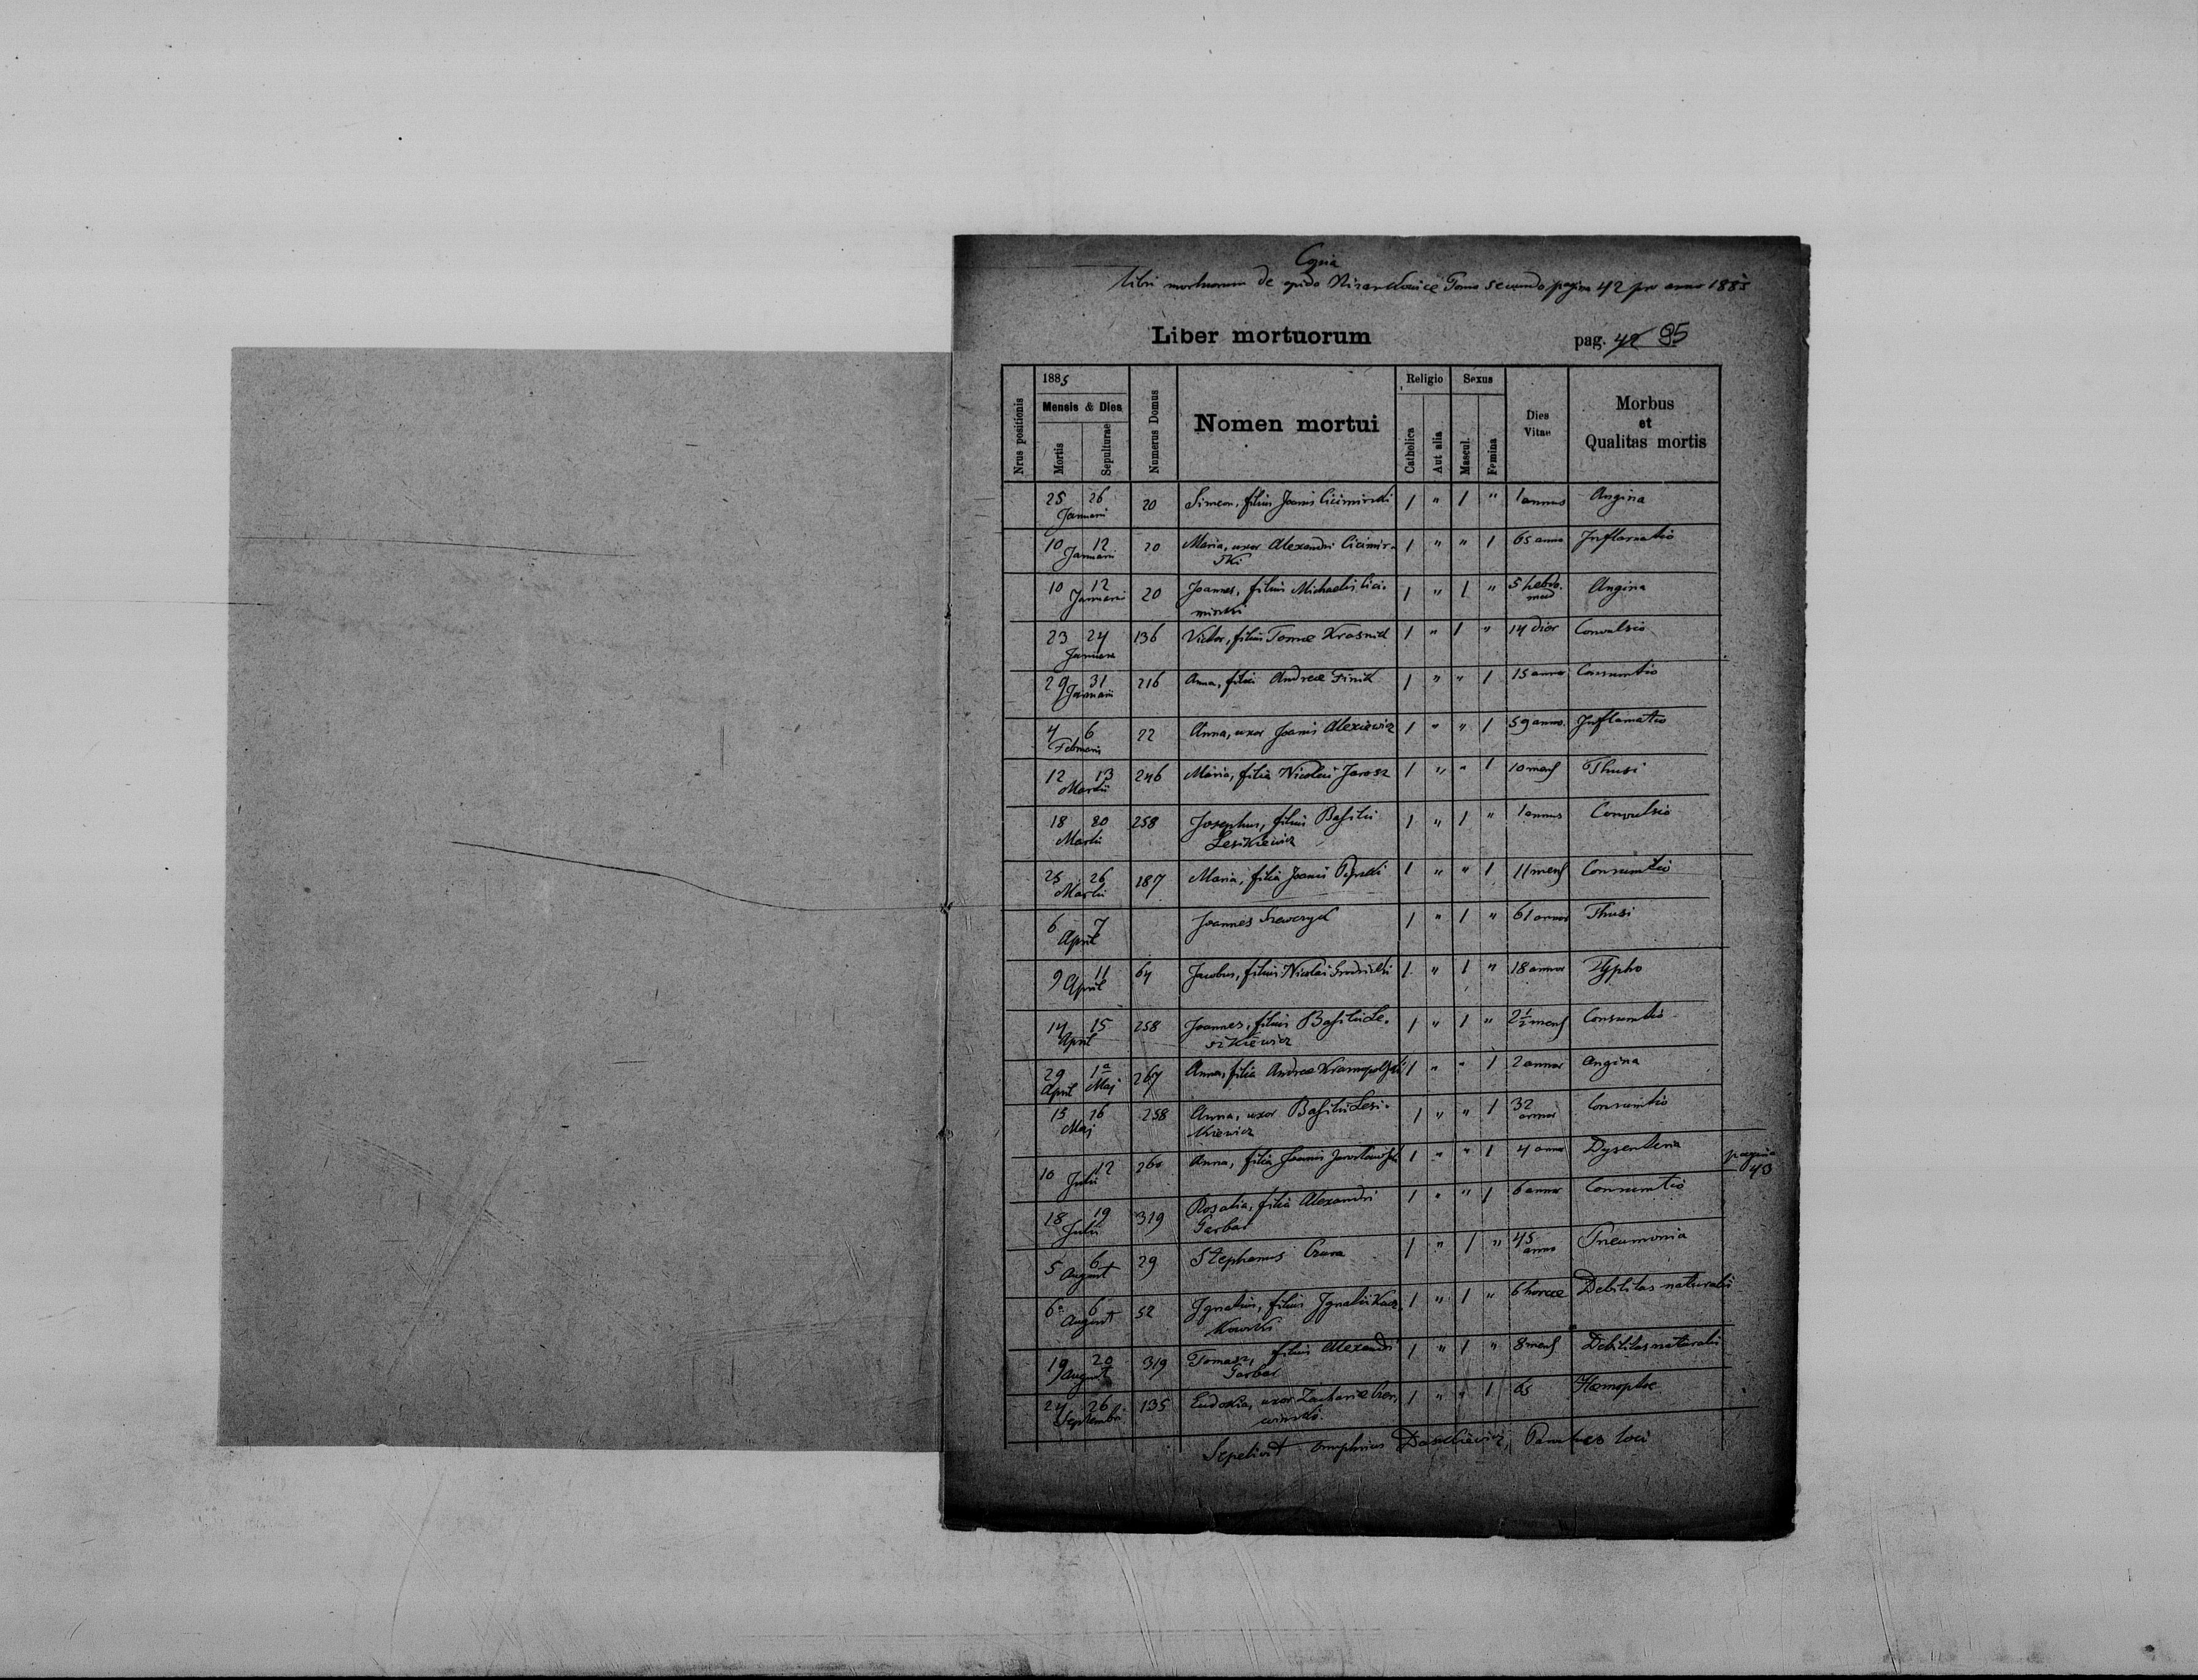 Copia
Libri mortuorum de opido Nizankowice Tomo secundo pagina 42 pro anno 1885
Liber mortuorum
pag. 42 95
Nrus positionis
1885
Mensis & Dies
Mortis
Sepulturae
Numerus Domus
Nomen mortui
Religio
Catholica
Aut alia
Sexus
Mascul.
Femina
Dies Vitae
Morbus et Qualitas mortis
25 26 Januarii 20 Simeon, filius Joanis Cicimirski 1 " 1 " 1 annus Angina
10 12 Januarii 20 Maria, uxor Alexandri Cicimir-
ski 1 " " 1 65 annos Inflamatio
10 12 Januarii 20 Joannes, filius Michaelis Cici-
mirski 1 " 1 " 5 hebdo-
mad Angina
23 24 Januarii 136 Victor, filius Tomae Krasnik 1 " 1 " 14 dier Convulsio
29 31 Januarii 216 Anna, filia Andreae Finik 1 " " 1 15 annor Consumtio
4 6 Februarii 22 Anna, uxor Joanis Alexiewicz 1 " " 1 59 annos. Inflamatio
12 13 Martii 246 Maria, filia Nicolai Jarosz 1 " " 1 10 mens Thusi
18 20 Martii 258 Josephus, filius Basilii
Lesikiewicz 1 " 1 " 1 annus Convulsio
25 26 Martii 187 Maria, filia Joanis 1 " " 1 11 mens Consumtio
6 7 April Joannes Szewczyk 1 " 1 " 61 annos Thusi
9 11 April 64 Jacobus, filius Nicolai 1 " 1 " 18 annor Typho
14 15 April 258 Joannes, filius Basilii Le-
sikiewicz 1 " 1 " 2 1/2 mens Consumtio
29 April 1a Maj 267 Anna, filia Andreae Kramopolski 1 " " 1 2 annor Angina
15 16 Maj 258 Anna, uxor Basilii Lesi-
kiewicz 1 " " 1 32 annor Consumtio
10 12 Julii 260 Anna, filia Joannis 1 " " 1 4 annor Dysenteria
pagina 43
18 19 Julii 319 Rosalia, filia Alexandri
Garbar 1 " " 1 6 annor Consumtio
5 6 August 29 Stephanus 1 " 1 " 45 annos Pneumonia
6 6 August 52 Ignatius, filius Ignatii Kacz-
kowski 1 " 1 " 6 horae Debilitas naturalis
19 20 August 319 Tomasz, filius Alexandri
Garbar 1 " 1 " 8 mens Debilitas naturalis
24 26 Septembri 135 Eudokia, uxor Zachariae Czer-
winski 1 " " 1 65 Hemoptoe
Sepelivit Onuphrius Daszkiewicz, Parochus loci